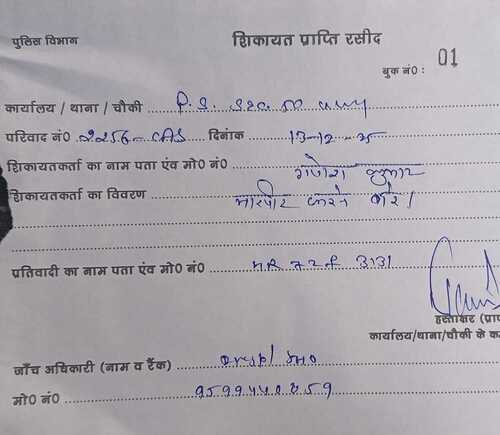 पुलिस विभाग शिकायत प्राप्ति रसीद
बुक नं0 : 01
कार्यालय / थाना / चौकी P.S.
परिवाद नं0 2256-CAS दिनांक 13-12-25
शिकायतकर्ता का नाम पता एंव मो0 नं0 गणेश कुमार
शिकायतकर्ता का विवरण मारपीट करने बारे।
प्रतिवादी का नाम पता एंव मो0 नं0 HR 72 F 3131
हस्ताक्षर (प्रा
कार्यालय/थाना/चौकी के क
जाँच अधिकारी (नाम व रैंक) SHO
मो0 नं0